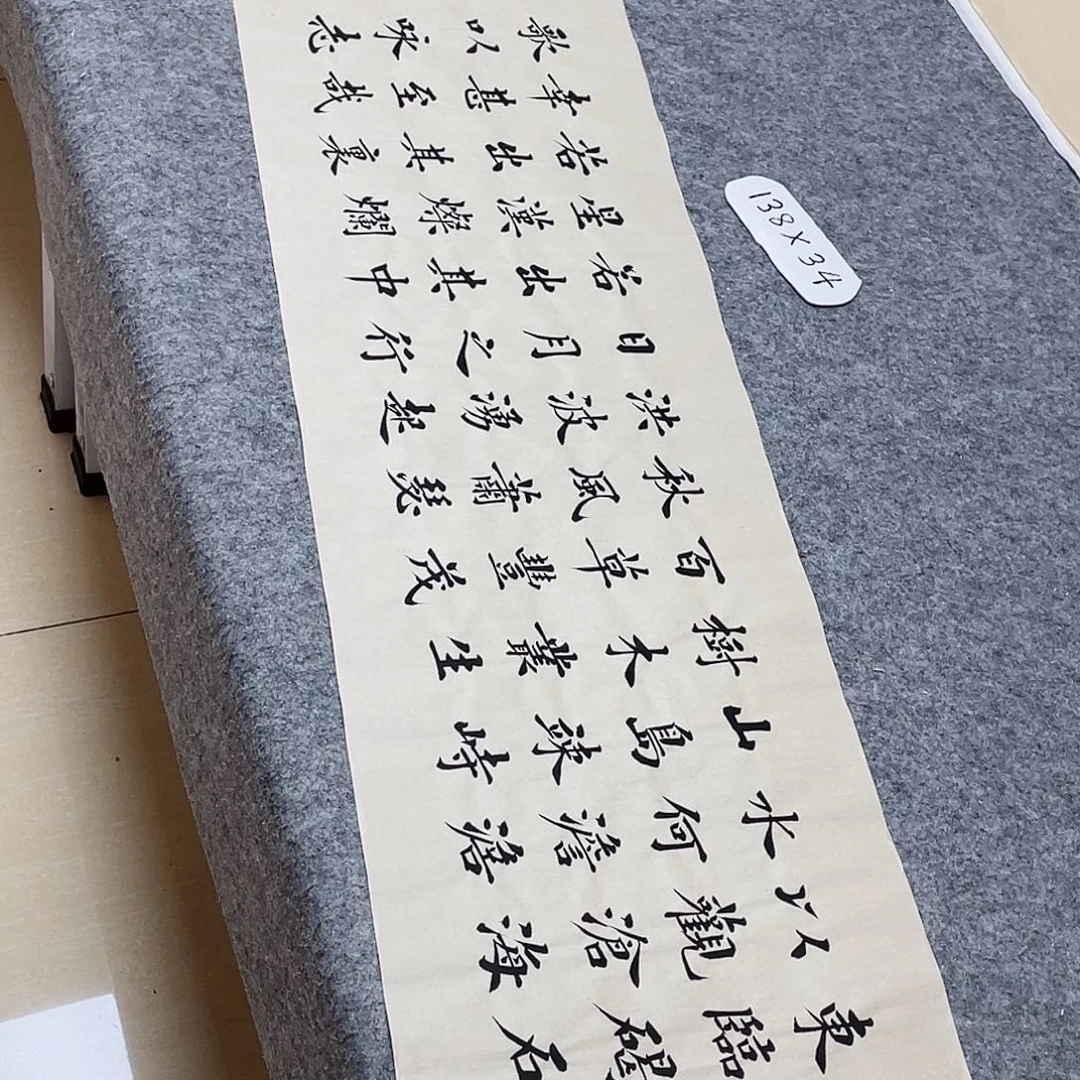 東臨碣石
以觀滄海
水何澹澹
山島竦峙
樹木叢生
百草豐茂
秋風蕭瑟
洪波湧起
日月之行
若出其中
星漢燦爛
若出其裏
幸甚至哉
歌以咏志
138×34